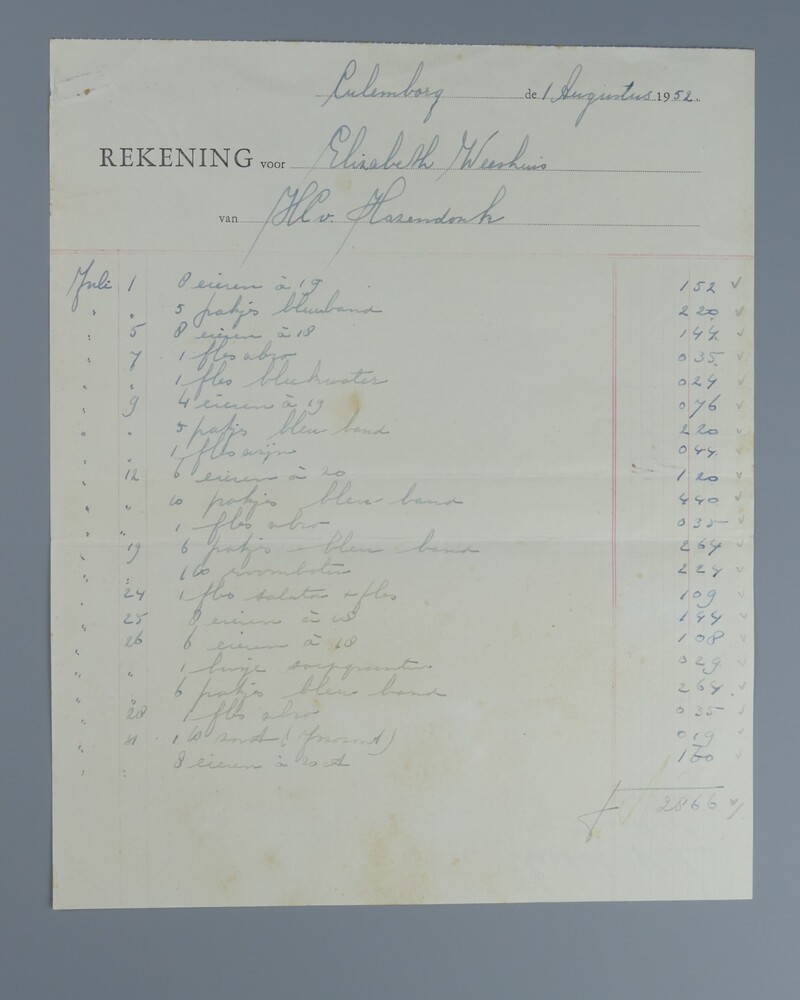 Culemborg de 1 Augustus 1952.
REKENING voor Elizabeth Weeshuis
van HC v. Hazendonk
Juli 1 8 eieren à 19 152
" " 5 pakjes bleuband 220
" 5 8 eieren à 18 144
" 7 1 fles abro 035
" " 1 fles bleekwater 024
" 9 4 eieren à 19 076
" " 5 pakjes bleu band 220
" " 1 fles azijn 044
" 12 6 eieren à 20 120
" " 10 pakjes bleu band 440
" " 1 fles abro 035
" 19 6 pakjes bleu band 264
" " 1 roomboter 224
" 24 1 fles salata + fles 109
" 25 8 eieren à 18 144
" 26 6 eieren à 18 108
" " 1 busje soepgroenten 029
" " 6 pakjes bleu band 264
" 28 1 fles abro 035
" 31 1 zout 019
" " 8 eieren à 20 ct 160
f 2866